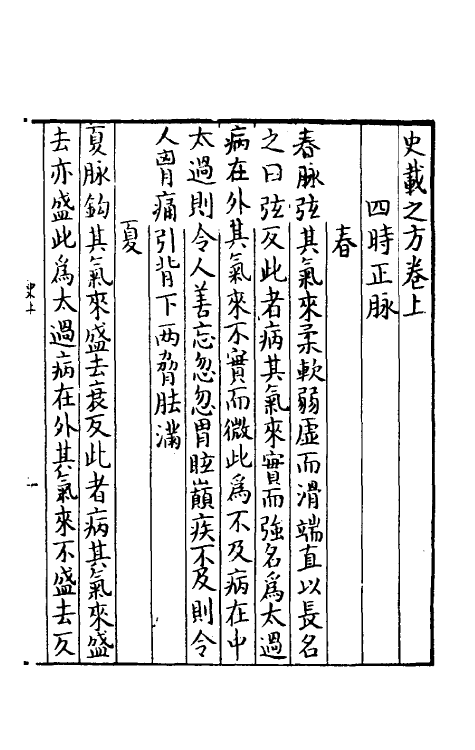 史載之方卷上
四時正脉
春
春脉弦其氣來柔軟弱虛而滑端直以長名
之曰弦反此者病其氣來實而強名爲太過
病在外其氣來不實而微此爲不及病在中
太過則令人善忘忽忽冒眩巓疾不及則令
人胷痛引背下两脅胠滿
夏
夏脉鈎其氣來盛去衰反此者病其氣來盛
去亦盛此爲太過病在外其氣來不盛去反
史上
一